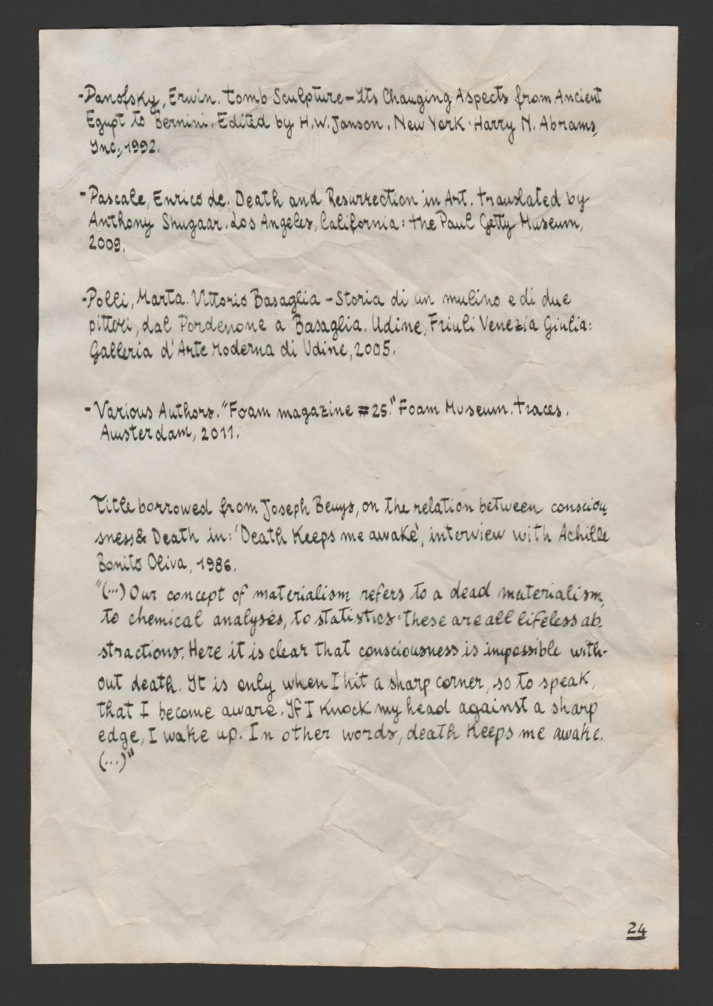 -Panofsky, Erwin. Tomb Sculpture - Its Changing Aspects from Ancient
Egypt to Bernini. Edited by H.W. Janson. New York: Harry N. Abrams,
Inc, 1992.
-Pascale, Enrico de. Death and Resurrection in Art. Translated by
Anthony Shugaar. Los Angeles, California: the Paul Getty Museum,
2009.
-Polli, Marta. Vittorio Basaglia - Storia di un mulino e di due
pittori, dal Pordenone a Basaglia. Udine, Friuli Venezia Giulia:
Galleria d'Arte Moderna di Udine, 2005.
-Various Authors. "Foam magazine #25." Foam Museum. Traces.
Amsterdam, 2011.
Title borrowed from Joseph Beuys, on the relation between consciou
sness & Death in: 'Death Keeps me awake', interview with Achille
Bonito Oliva, 1986.
"(...) Our concept of materialism refers to a dead materialism,
to chemical analyses, to statistics: these are all lifeless ab
stractions. Here it is clear that consciousness is impossible with-
out death. It is only when I hit a sharp corner, so to speak,
that I become aware. If I knock my head against a sharp
edge, I wake up. In other words, death keeps me awake.
(...)"
24